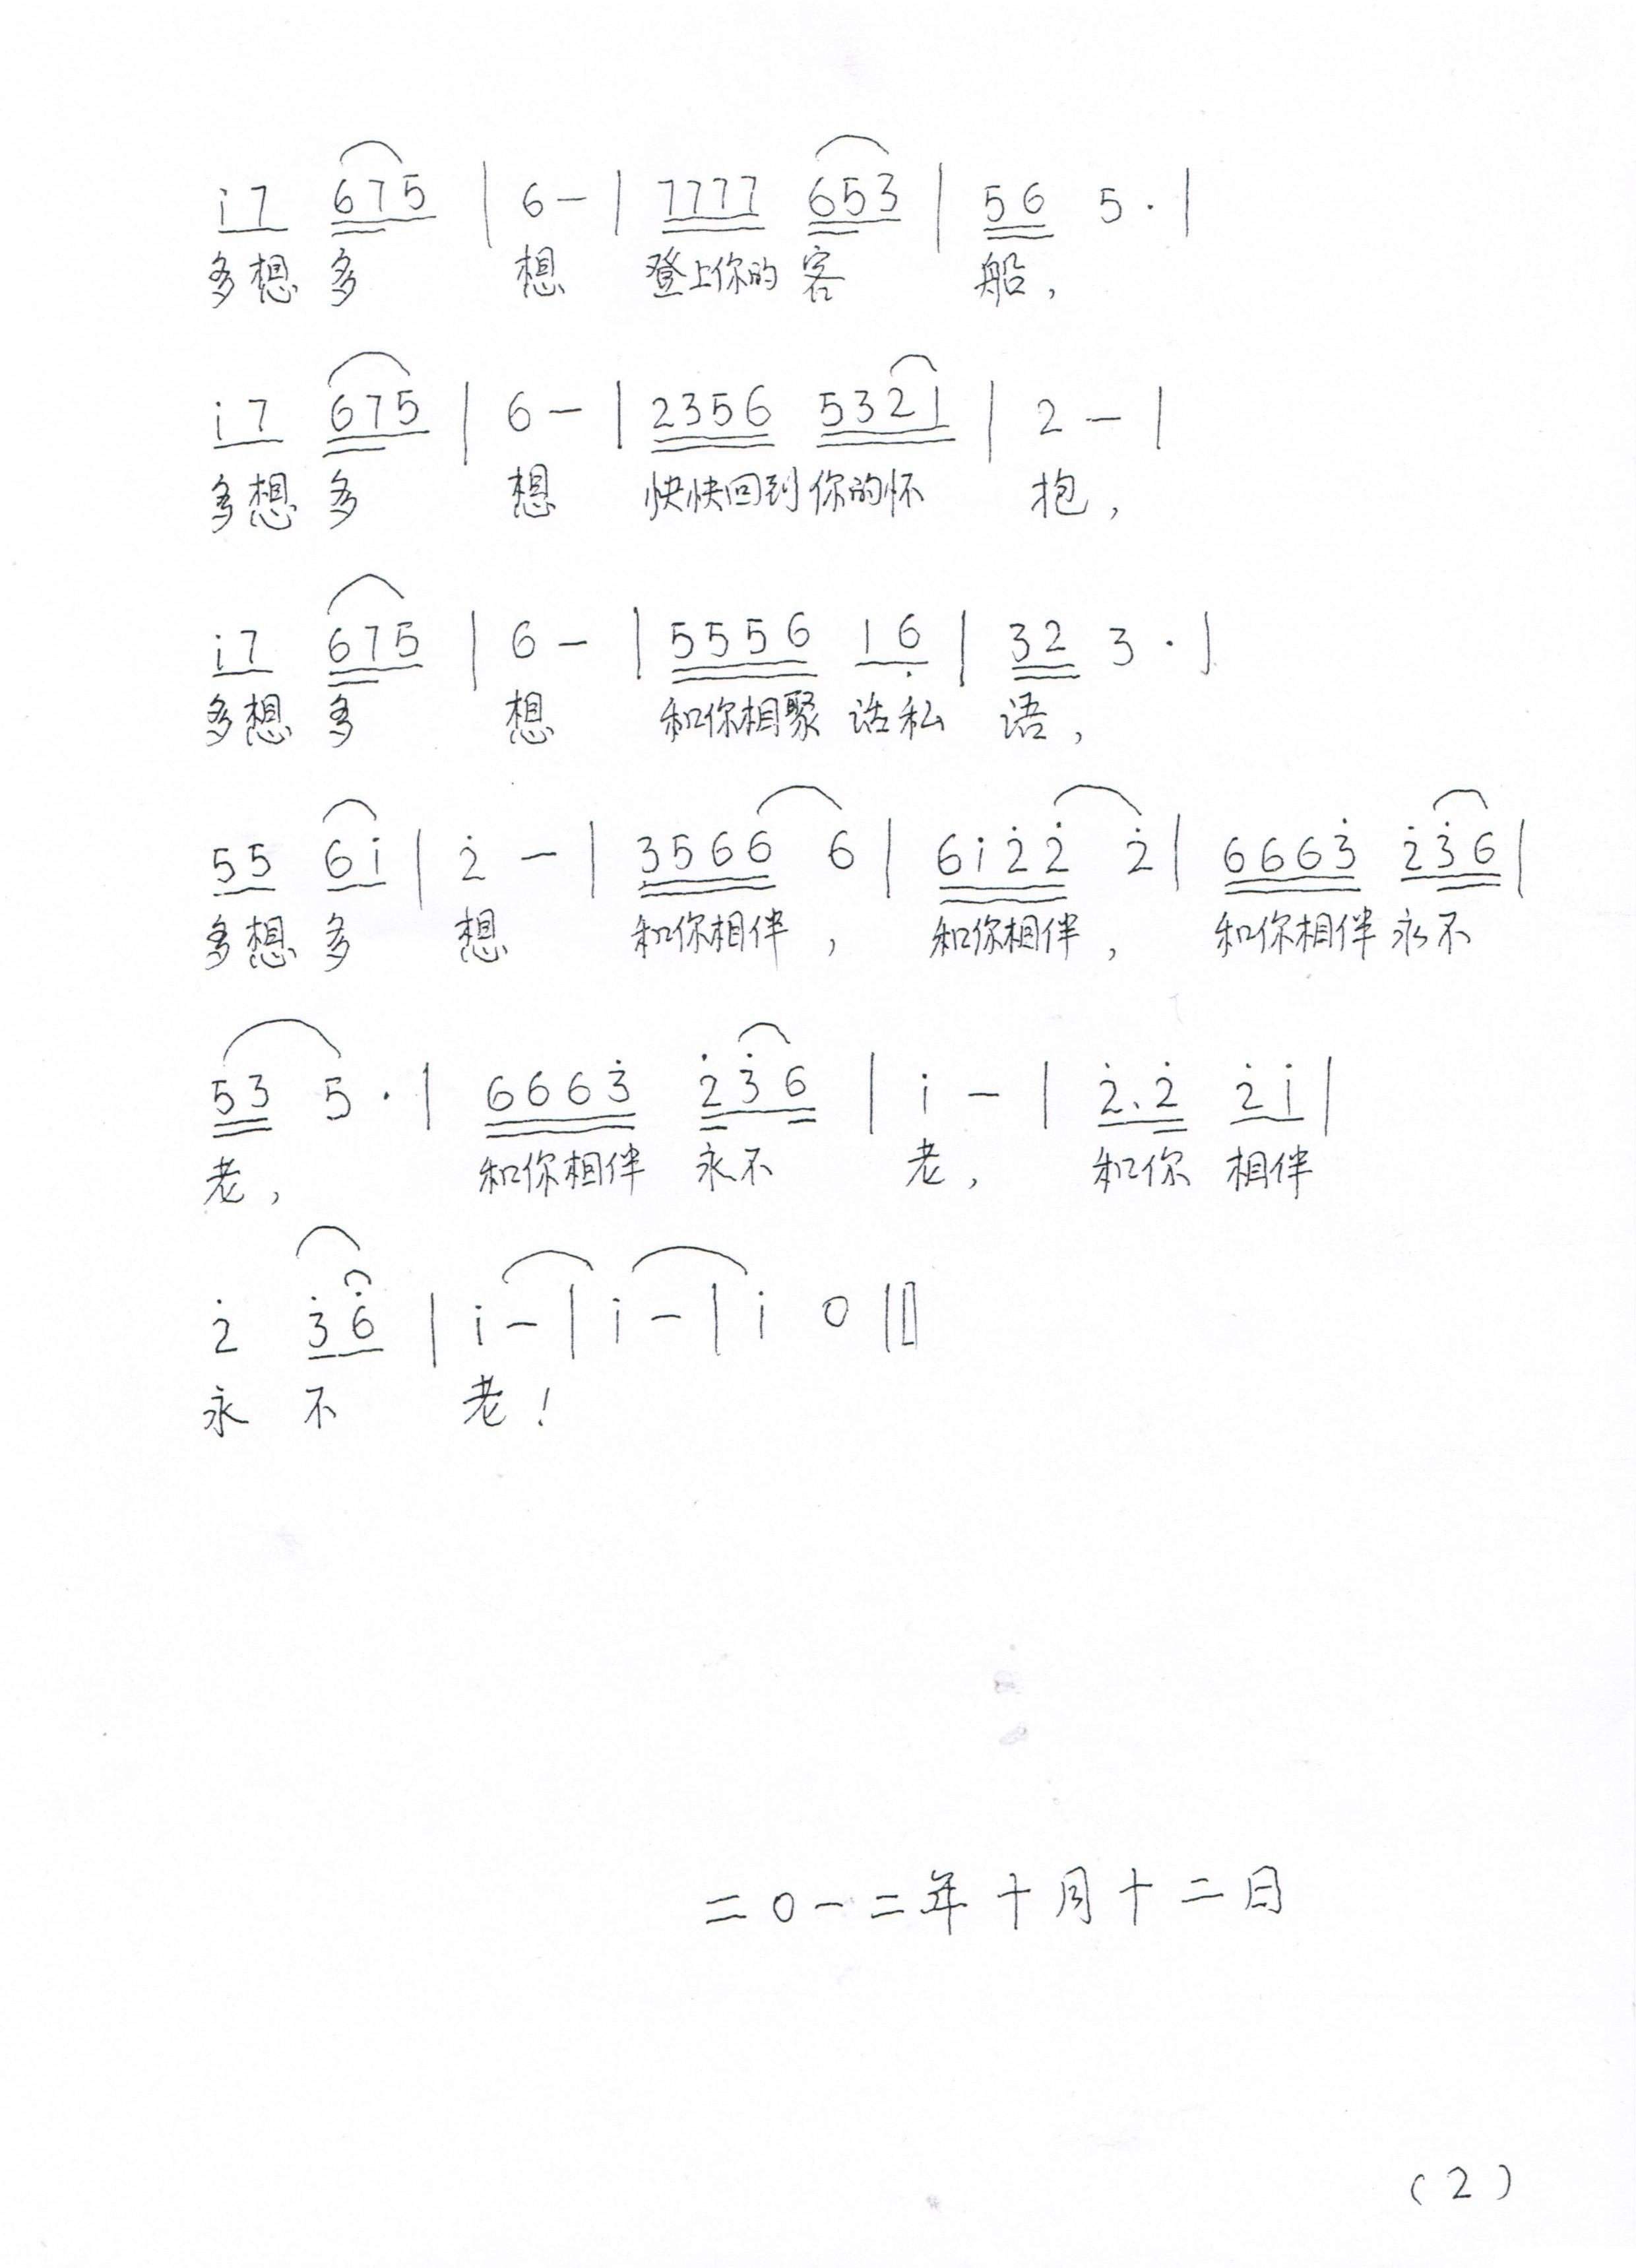 i7 675 | 6 – | 7777 653 | 56 5 · |
多想 多 想 登上你的 客 船,
i7 675 | 6 – | 2356 5321 | 2 – |
多想 多 想 快快回到 你的怀 抱,
i7 675 | 6 – | 5556 16̣ | 32 3 · |
多想 多 想 和你相聚 话私 语,
55 6i | 2̇ – | 3566 6 | 6i2̇2̇ 2̇ | 6663̇ 2̇3̇6 |
多想 多 想 和你相伴, 和你相伴, 和你相伴 永不
53 5 · | 6663̇ 2̇3̇6 | i – | 2̇.2̇ 2̇i |
老, 和你相伴 永不 老, 和你 相伴
2̇ 3̇6̇ | i – | i – | i 0 ‖
永 不 老!
二〇一二年十月十二日
(2)